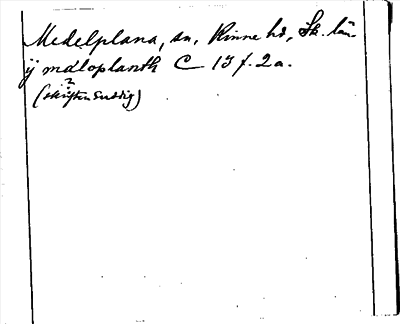 Medelplana, sn, Kinne hd, Sk. län.
ÿ mdloplanth C 15 f. 2a.
?
(skriften suddig)